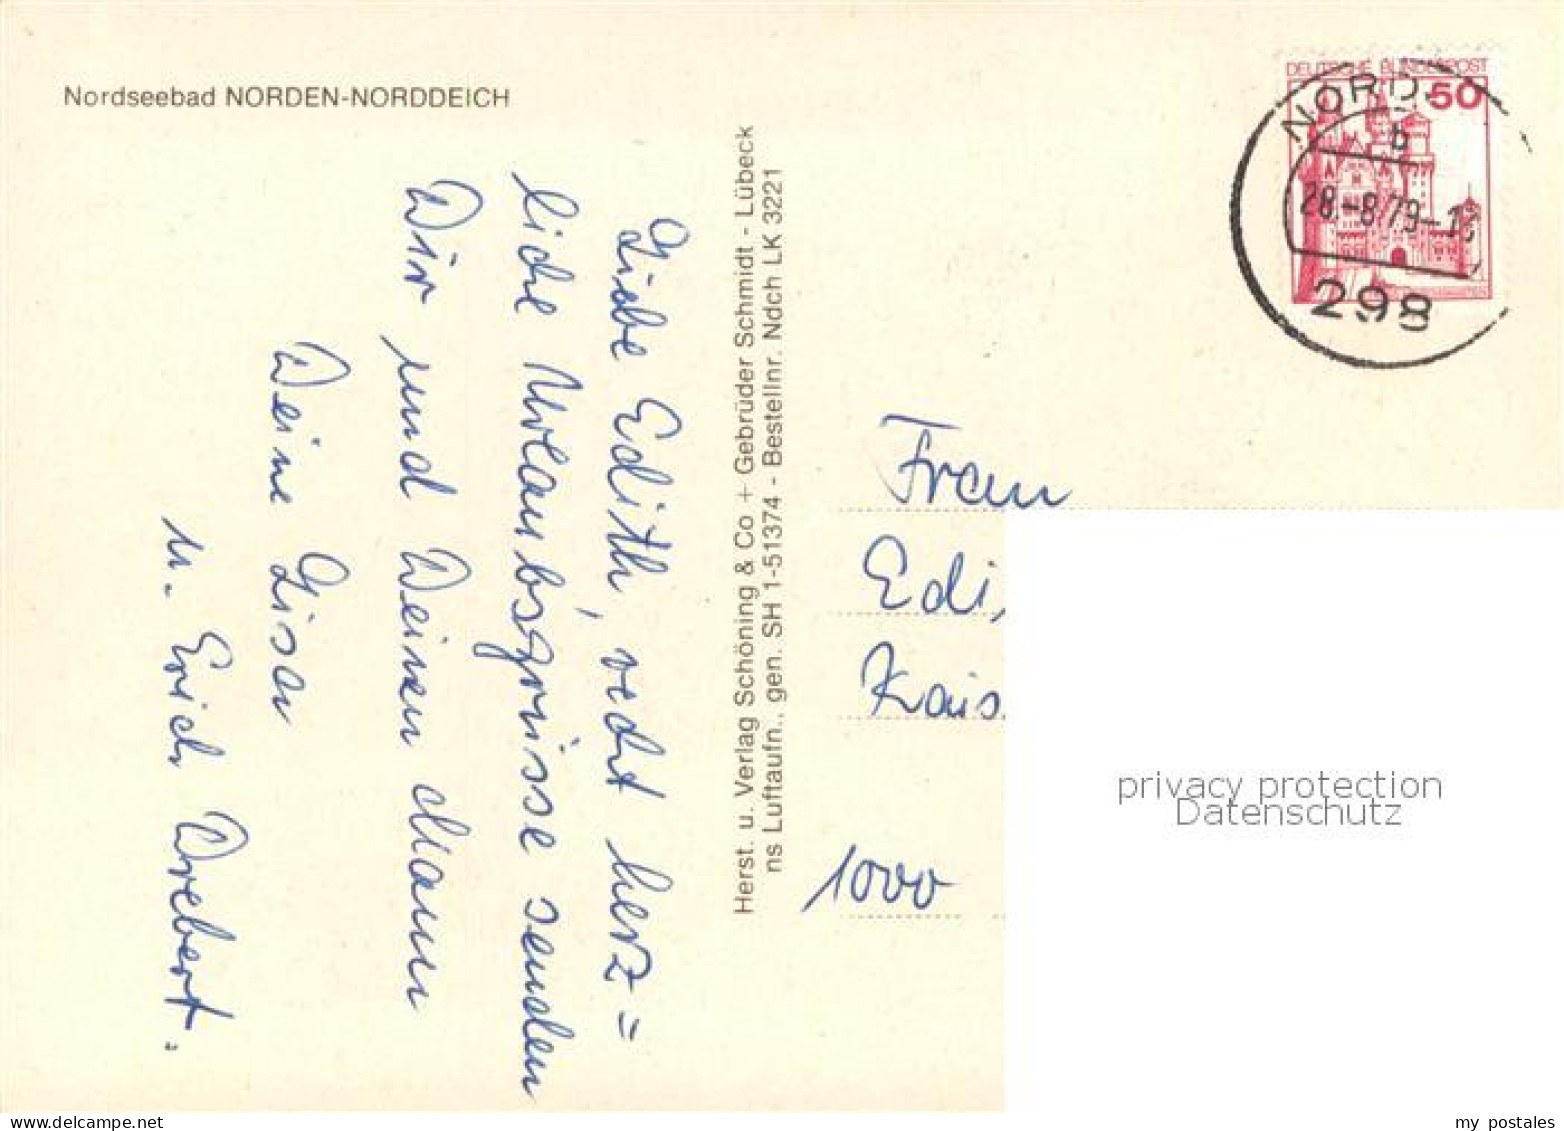 Nordseebad NORDEN-NORDDEICH
Liebe Edith, recht herz=
liche Urlaubsgrüsse senden
Dir und Deinen Mann
Deine Gisa
u. Erich Drebert.
Herst. u. Verlag Schöning & Co + Gebrüder Schmidt - Lübeck
ns Luftaufn., gen. SH 1-51374 - Bestellnr. Ndch LK 3221
DEUTSCHE BUNDESPOST
50
NORD
b
28.-8.79-18
298
Frau
Edi
Kais
1000
privacy protection
Datenschutz
my postales